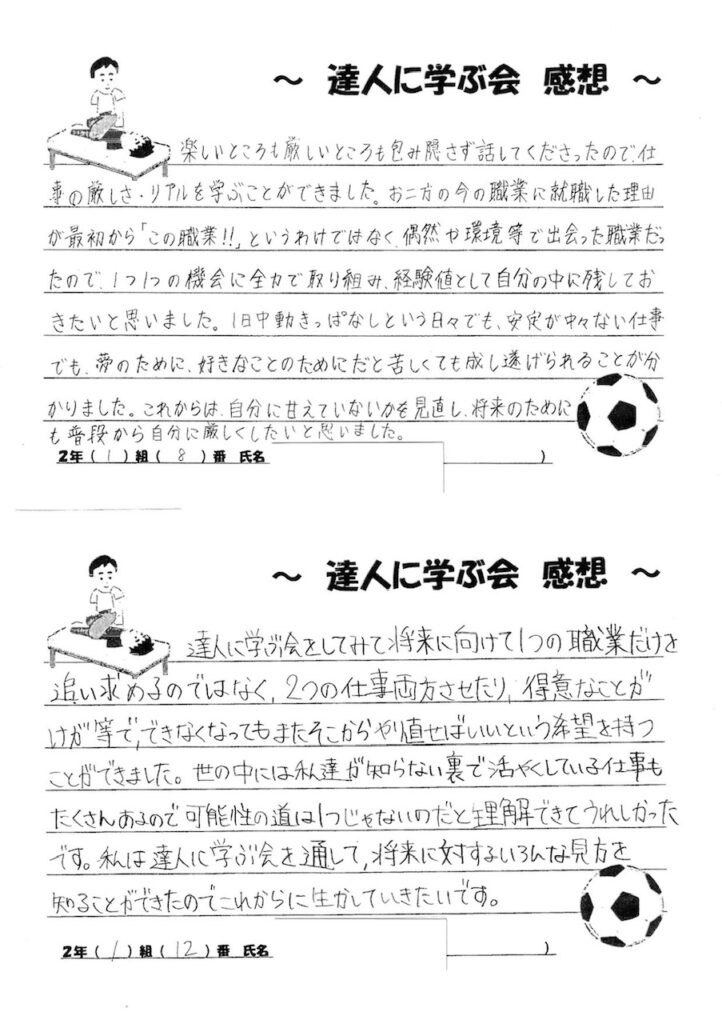 ～ 達人に学ぶ会 感想 ～
楽しいところも厳しいところも包み隠さず話してくださったので、仕
事の厳しさ・リアルを学ぶことができました。お二方の今の職業に就職した理由
が最初から「この職業!!」というわけではなく、偶然や環境等で出会った職業だっ
たので、1つ1つの機会に全力で取り組み、経験値として自分の中に残してお
きたいと思いました。1日中動きっぱなしという日々でも、安定が中々ない仕事
でも、夢のために、好きなことのためにだと苦しくても成し遂げられることが分
かりました。これからは、自分に甘えていないかを見直し、将来のために
も普段から自分に厳しくしたいと思いました。
2年(1)組(8)番 氏名 )
～ 達人に学ぶ会 感想 ～
達人に学ぶ会をしてみて将来に向けて1つの職業だけを
追い求めるのではなく、2つの仕事両方させたり、得意なことが
けが等で、できなくなってもまたそこからやり直せばいいという希望を持つ
ことができました。世の中には私達が知らない裏で活やくしている仕事も
たくさんあるので可能性の道は1つじゃないのだと理解できてうれしかった
です。私は達人に学ぶ会を通して、将来に対するいろんな見方を
知ることができたのでこれからに生かしていきたいです。
2年(1)組(12)番 氏名 )